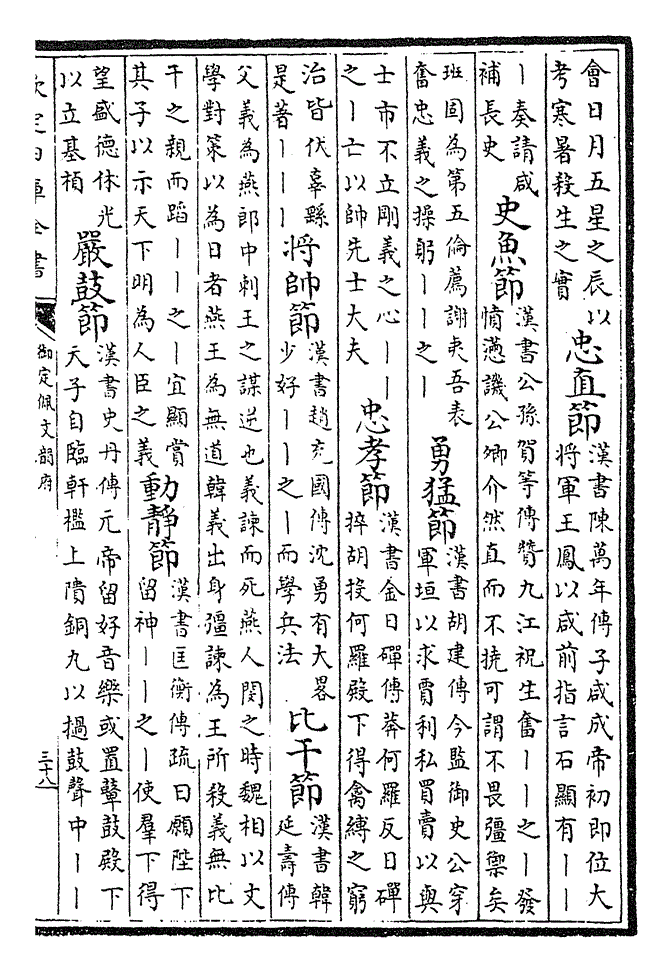 會日月五星之辰以
考寒暑殺生之實
忠直節
漢書陳萬年傳子咸成帝初即位大
將軍王鳳以咸前指言石顯有丨丨
丨奏請咸
補長史
史魚節
漢書公孫賀等傳贊九江祝生奮丨丨之丨發
憤懣譏公卿介然直而不撓可謂不畏彊禦矣
班固為第五倫薦謝夷吾表
奮忠義之操躬丨丨之丨
勇猛節
漢書胡建傳今監御史公穿
軍垣以求賈利私買賣以與
士市不立剛義之心丨丨
之丨亡以帥先士大夫
忠孝節
漢書金日磾傳莽何羅反日磾
捽胡投何羅殿下得禽縛之窮
治皆伏辜繇
是著丨丨丨
將帥節
漢書趙充國傳沈勇有大畧
少好丨丨之丨而學兵法
比干節
漢書韓
延壽傳
父義為燕郎中剌王之謀逆也義諫而死燕人閔之時魏相以文
學對策以為日者燕王為無道韓義出身彊諫為王所殺義無比
干之親而蹈丨丨之丨宜顯賞
其子以示天下明為人臣之義
動靜節
漢書匡衡傳疏曰願陛下
留神丨丨之丨使羣下得
望盛德休光
以立基楨
嚴鼓節
漢書史丹傳元帝留好音樂或置鼙鼓殿下
天子自臨軒檻上隤銅丸以擿鼓聲中丨丨
欽定四庫全書
御定佩文韻府
三十八